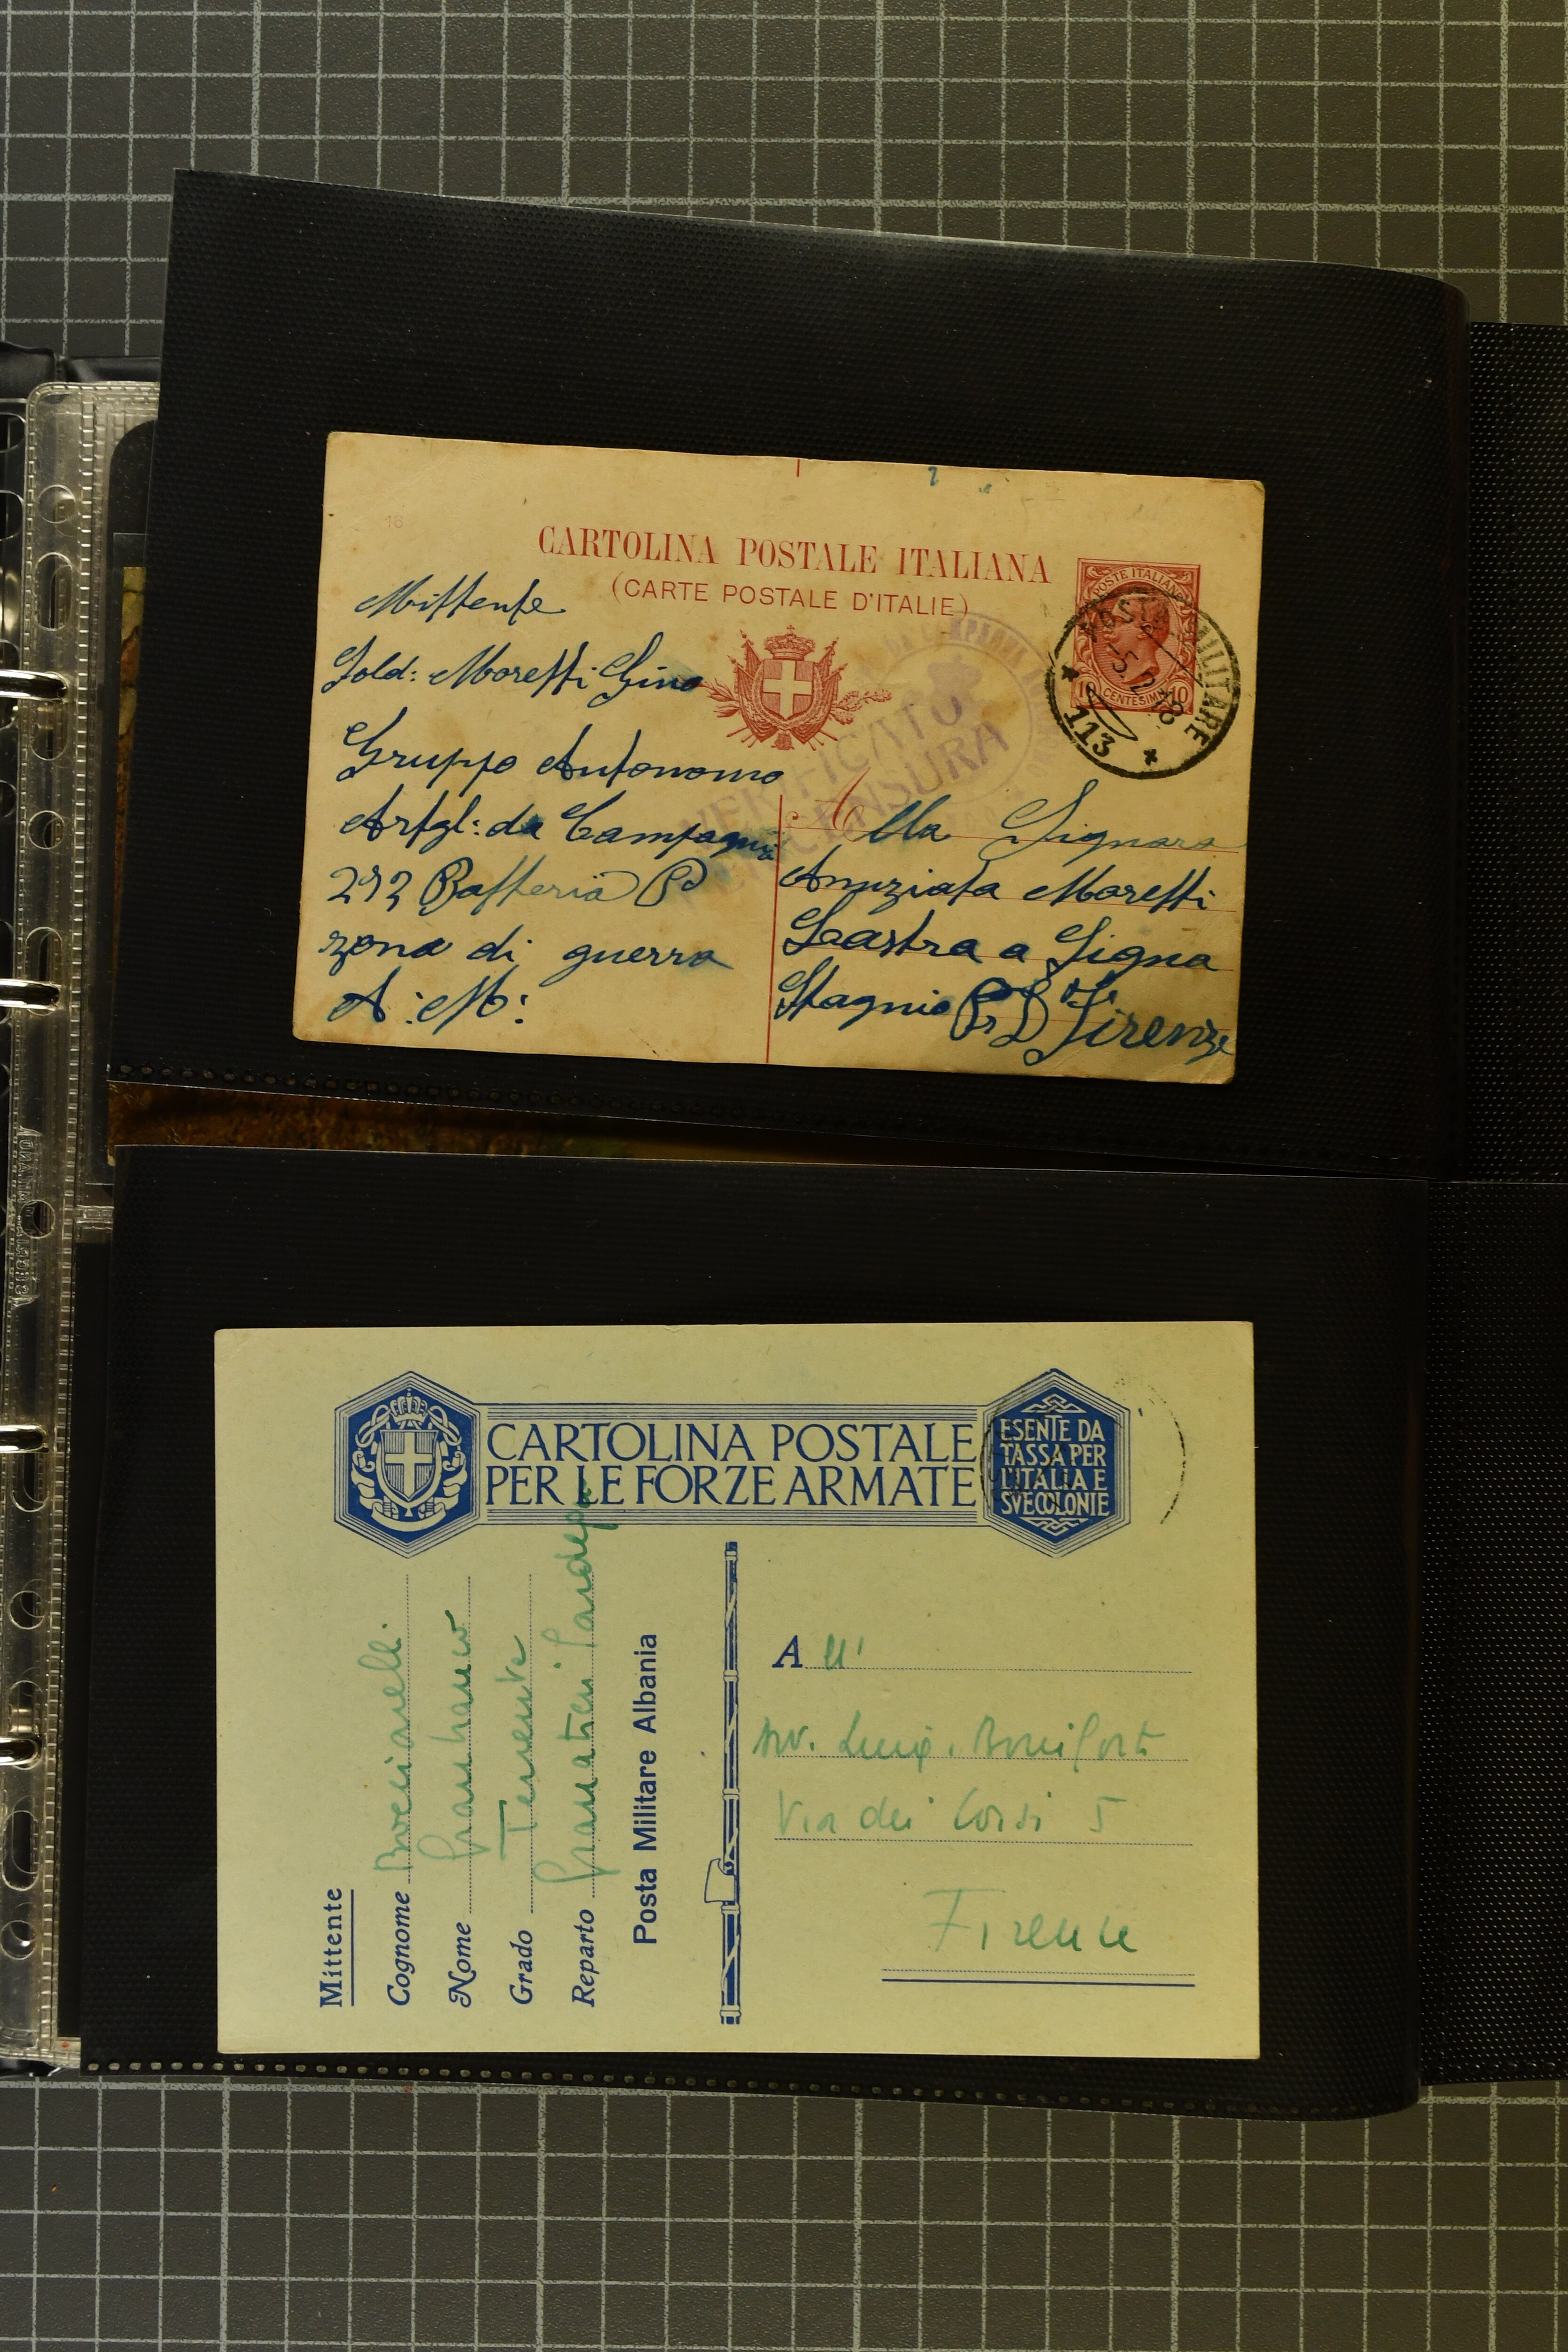 18
CARTOLINA POSTALE ITALIANA
(CARTE POSTALE D'ITALIE)
POSTE ITALIANE
10 CENTESIMI 10
POSTA MILITARE
113
VERIFICATO
PER CENSURA
Mittente
Sold: Moretti Gino
Gruppo Autonomo
Artgl: da Campagna
292 Batteria
zona di guerra
A: M:
Alla Signora
Anunziata Moretti
Lastra a Signa
Stagnio Pr Di Firenze
CARTOLINA POSTALE
PER LE FORZE ARMATE
ESENTE DA
TASSA PER
L'ITALIA E
SVE COLONIE
Mittente
Cognome
Nome
Grado Tenente
Reparto Granatieri
Posta Militare Albania
A ll'
Avv. Luigi Boniforti
Via dei Corsi 5
Firenze